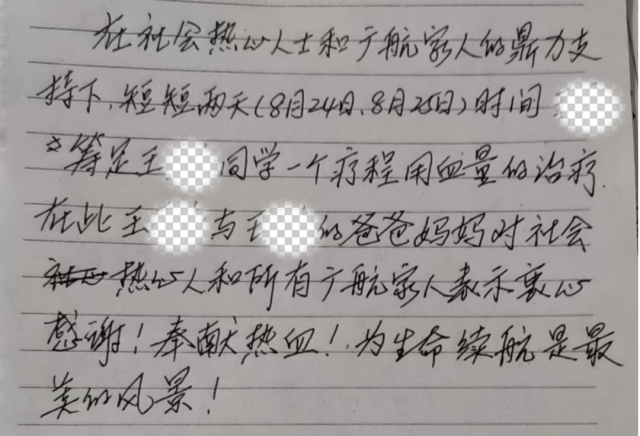 在社会热心人士和广航家人的鼎力支
持下,短短两天(8月24日、8月25日)时间
筹足王 同学一个疗程用血量的治疗.
在此王 与王 的爸爸妈妈对社会
热心人和所有广航家人表示衷心
感谢!奉献热血!为生命续航是最
美的风景!